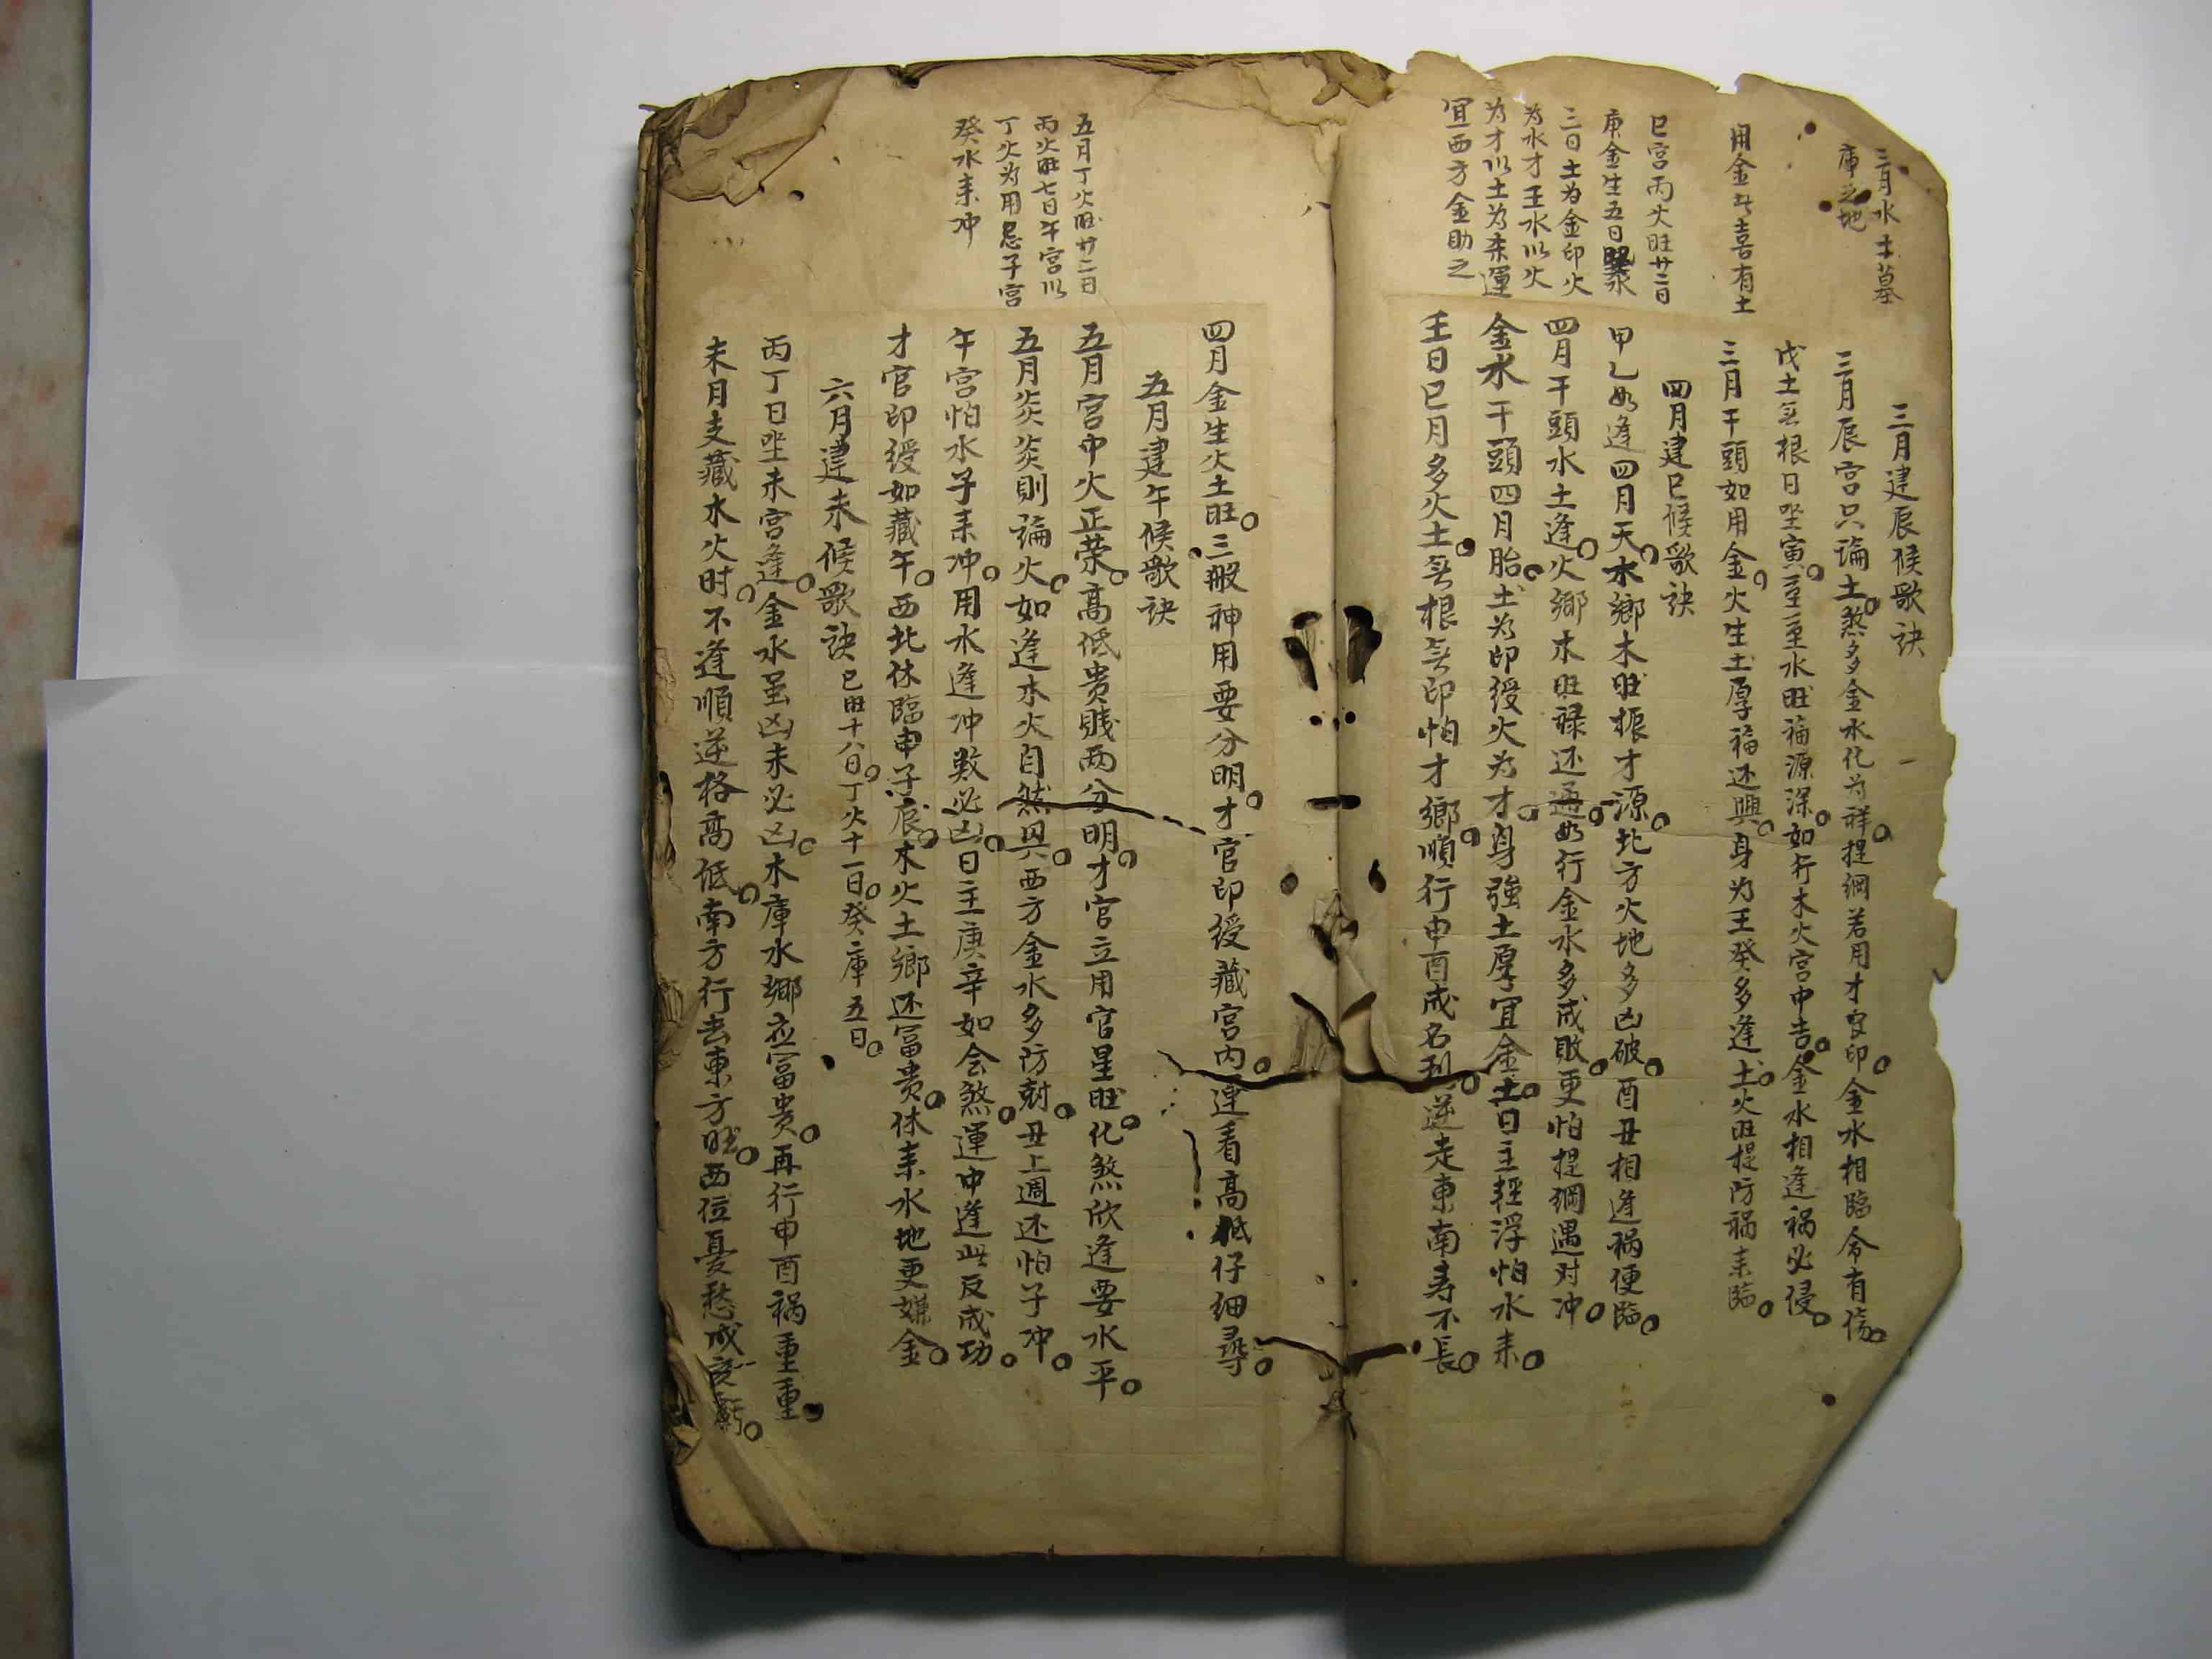 三月水土墓
庫之地
用金此喜有土
巳宮丙火旺廿二日
庚金生五日
三日土为金印火
为水才壬水以火
为才以土为杀運
宜西方金助之
三月建辰候歌訣
三月辰宮只論土煞多金水化为祥提綱若用才官印金水相臨命有傷
戊土無根日坐寅至水旺福源深如行木火宮中吉金水相逢祸必侵
三月干頭如用金火生土厚福还興身为壬癸多逢土火旺提防祸耒臨
四月建巳候歌訣
甲乙如逢四月天水鄉木旺振才源北方火地多凶破酉丑相逢祸便臨
四月干頭水土逢火鄉木旺禄还通如行金水多成敗更怕提綱遇对冲
金水干頭四月胎土为印绶火为才身強土厚宜金土日主輕浮怕水耒
壬日巳月多火土無根無印怕才鄉順行申酉成名利逆走東南寿不長
四月金生火土旺三般神用要分明才官印绶藏宮内運看高低仔细尋
五月丁火旺廿二日
丙火旺七日午宮以
丁火为用忌子宮
癸水耒冲
五月建午候歌訣
五月宮中火正荣高低贵賎两分明才官立用官星旺化煞欣逢要水平
五月炎炎則論火如逢木火自然興西方金水多防尅丑上週还怕子冲
午宮怕水子耒冲用水逢冲数必凶日主庚辛如会煞運中逢此反成功
才官印绶如藏午西北休臨申子辰木火土鄉还富贵休耒水地更嫌金
六月建未候歌訣 巳旺十八日丁火十一日癸庫五日
丙丁日坐未宮逢金水虽凶未必凶木庫水鄉应富贵再行申酉祸重重
未月支藏水火时不逢順逆格高低南方行去東方旺西位憂愁成虧